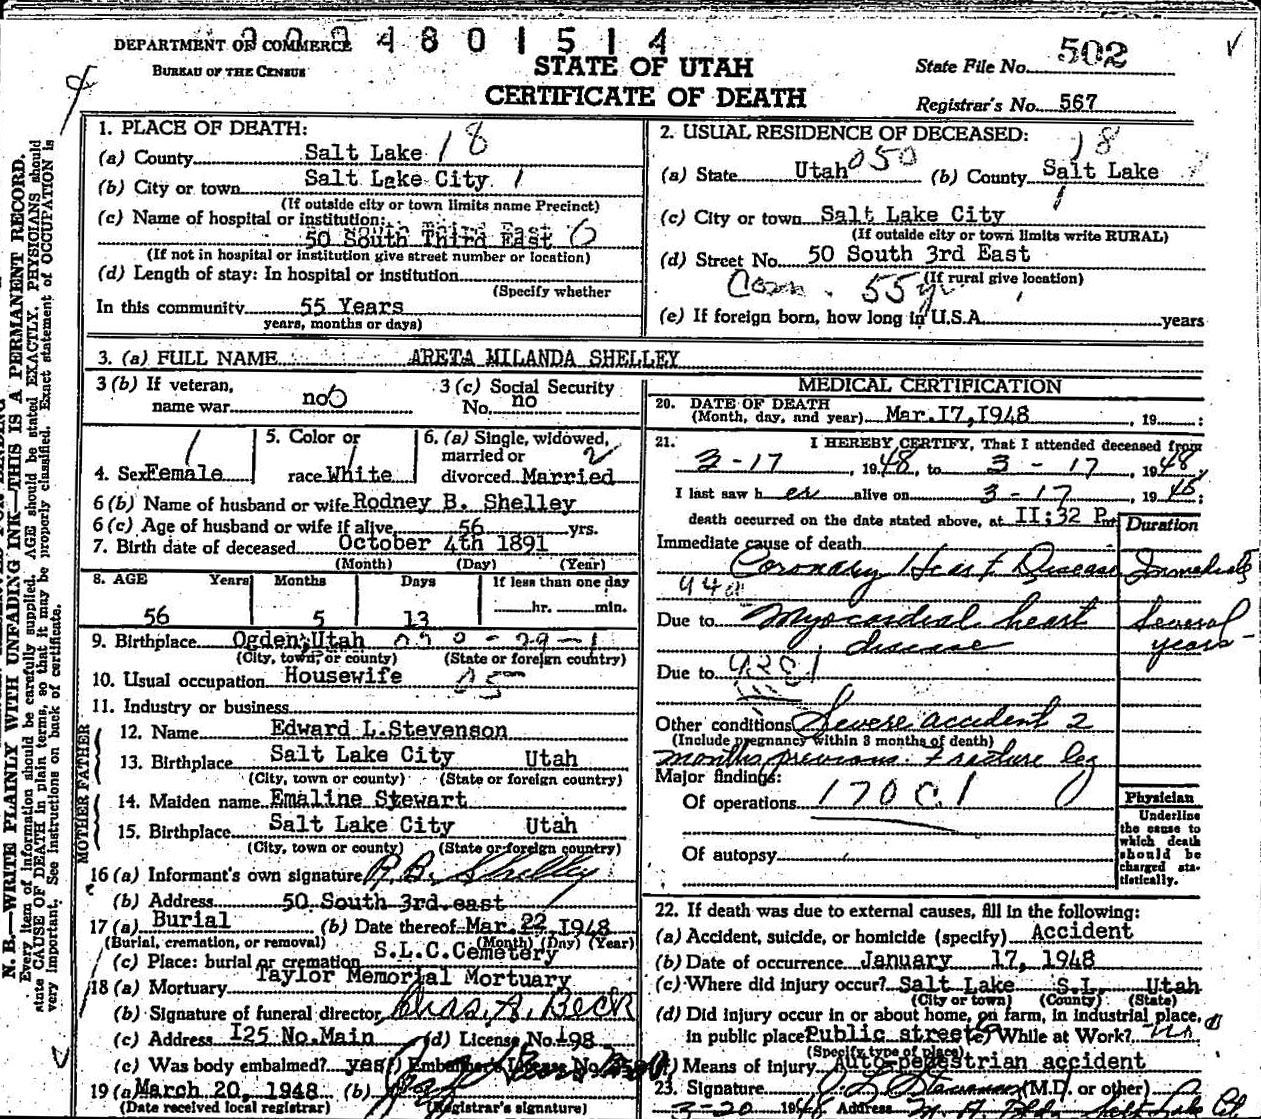 DEPARTMENT OF COMMERCE
BUREAU OF THE CENSUS
4801514
STATE OF UTAH
CERTIFICATE OF DEATH
State File No. 502
Registrar's No. 567
N. B.—WRITE PLAINLY WITH UNFADING INK—THIS IS A PERMANENT RECORD.
Every item of information should be carefully supplied. AGE should be stated EXACTLY. PHYSICIANS should
state CAUSE OF DEATH in plain terms, so that it may be properly classified. Exact statement of OCCUPATION is
very important. See instructions on back of certificate.
1. PLACE OF DEATH:
(a) County Salt Lake 18
(b) City or town Salt Lake City 1
(If outside city or town limits name Precinct)
(c) Name of hospital or institution:
50 South Third East 6
(If not in hospital or institution give street number or location)
(d) Length of stay: In hospital or institution
(Specify whether
In this community 55 Years
years, months or days)
2. USUAL RESIDENCE OF DECEASED:
18
(a) State Utah 050 (b) County Salt Lake
1
(c) City or town Salt Lake City
(If outside city or town limits write RURAL)
(d) Street No. 50 South 3rd East
(If rural give location)
Com. 55y
(e) If foreign born, how long in U.S.A. years
3. (a) FULL NAME ARETA MILANDA SHELLEY
3 (b) If veteran, name war no
3 (c) Social Security No. no
4. Sex Female
5. Color or race White
6. (a) Single, widowed, married or divorced Married
6 (b) Name of husband or wife Rodney B. Shelley
6 (c) Age of husband or wife if alive 56 yrs.
7. Birth date of deceased October 4th 1891
(Month) (Day) (Year)
8. AGE Years Months Days If less than one day
56 5 13 hr. min.
9. Birthplace Ogden, Utah
(City, town, or county) (State or foreign country)
10. Usual occupation Housewife
11. Industry or business
FATHER
12. Name Edward L. Stevenson
13. Birthplace Salt Lake City Utah
(City, town or county) (State or foreign country)
MOTHER
14. Maiden name Emaline Stewart
15. Birthplace Salt Lake City Utah
(City, town or county) (State or foreign country)
16 (a) Informant's own signature R.B. Shelley
(b) Address 50 South 3rd. east
17 (a) Burial (b) Date thereof Mar. 22, 1948
(Burial, cremation, or removal) (Month) (Day) (Year)
(c) Place: burial or cremation S.L.C. Cemetery
18 (a) Mortuary Taylor Memorial Mortuary
(b) Signature of funeral director Chas. A. Beck
(c) Address 125 No. Main (d) License No. 198
(e) Was body embalmed? yes (f) Embalmer's License No.
19 (a) March 20, 1948 (b)
(Date received local registrar) (Registrar's signature)
MEDICAL CERTIFICATION
20. DATE OF DEATH
(Month, day, and year) Mar. 17, 1948, 19 :
21. I HEREBY CERTIFY, That I attended deceased from
3-17, 1948, to 3-17, 1948
I last saw her alive on 3-17, 1948;
death occurred on the date stated above, at 11:32 P m
Duration
Immediate cause of death
Coronary Heart Disease Immediate
94a
Due to Myocardial heart disease Several years-
Due to 4201
Other conditions Severe accident 2
(Include pregnancy within 3 months of death)
months previous. Fracture leg
Major findings:
Of operations 170C.1
Of autopsy
Physician
Underline the cause to which death should be charged statistically.
22. If death was due to external causes, fill in the following:
(a) Accident, suicide, or homicide (specify) Accident
(b) Date of occurrence January 17, 1948
(c) Where did injury occur? Salt Lake S.L. Utah
(City or town) (County) (State)
(d) Did injury occur in or about home, on farm, in industrial place,
in public place? Public street (e) While at Work? no
(Specify type of place)
(f) Means of Injury Auto-pedestrian accident
23. Signature (M.D. or other)
3-20 1948 Address